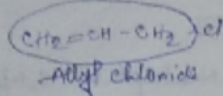 CH2=CH-CH2-Cl
Allyl chloride